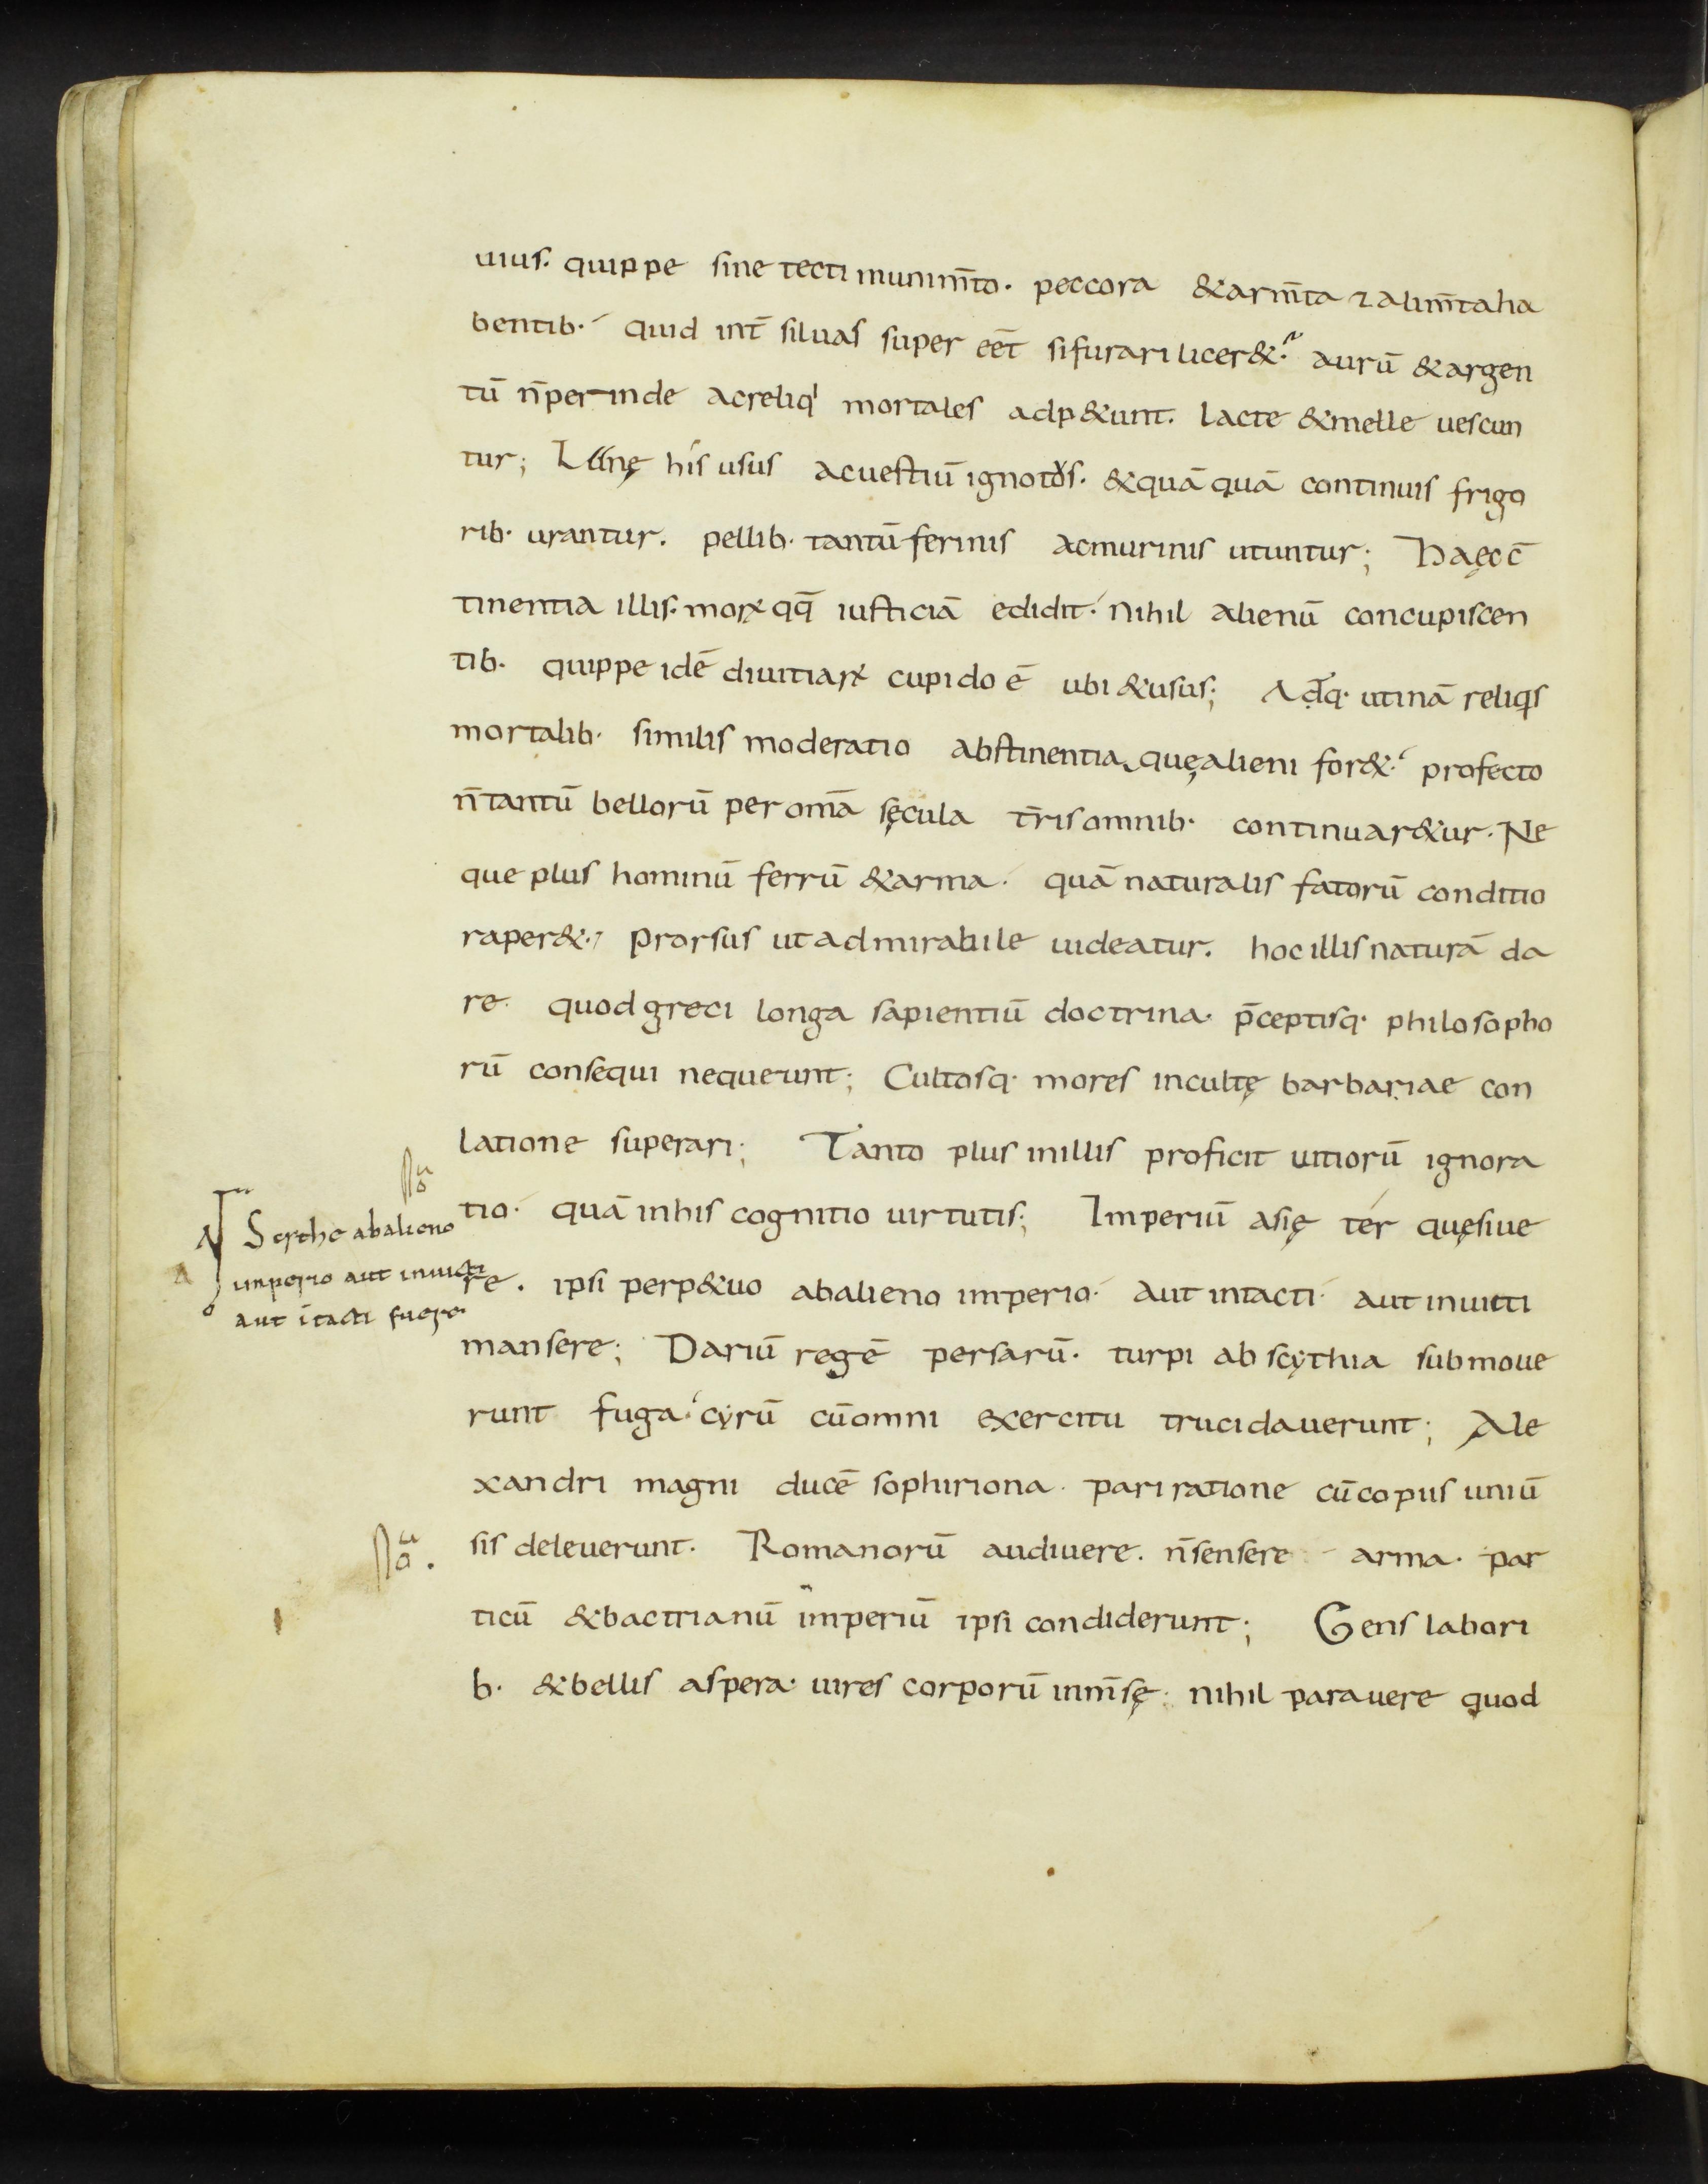 uius. quippe sine tecti munim̄to. peccora &arm̄ta ⁊alim̄taha
bentib· quid int̄ siluas super eēt sifurari licer&· aurū &argen
tū n̄perinde acreliqi mortales adp&unt. lacte &melle uescun
tur; Lanę his usus acuestiū ignotus. &quāquā continuis frigo
rib· urantur. pellib· tantūferinis acmurinis utuntur; Haęcc̄
tinentia illis. morꝝqq̄ iusticiā edidit· nihil alienū concupiscen
tib· quippe idē diuitiaꝝ cupido ē ubi &usus; Adq· utinā reliqs
mortalib· similis moderatio abstinentia quęalieni for&· profecto
n̄tantū bellorū per om̄a sęcula t̄risomnib· continuar&ur. Ne
que plus hominū ferrū &arma· quā naturalis fatorū conditio
raper&· Prorsus utadmirabile uideatur. hocillisnaturā da
re· quodgreci longa sapientiū doctrina· p̄ceptisq· philosopho
rū consequi nequeunt; Cultosq· mores incultę barbariae con
latione superari; Tanto plus inillis proficit uitiorū ignora
tio· quā inhis cognitio uirtutis; Imperiū asię ter quęsiue
re. ipsi perp&uo abalieno imperio· aut intacti· aut inuicti
mansere; Dariū regē persarū· turpi ab scythia submoue
runt fuga· cyrū cūomni exercitu trucidauerunt; Ale
xandri magni ducē sophiriona· pari ratione cūcopiis uniū
sis deleuerunt. Romanorū audiuere. n̄sensere arma· par
ticū &bactrianū imperiū ipsi condiderunt; Gens labori
b· &bellis aspera· uires corporū inm̄sę· nihil parauere quod
Scythe abalieno
imperio aut inuicti
aut ītacti fuere·